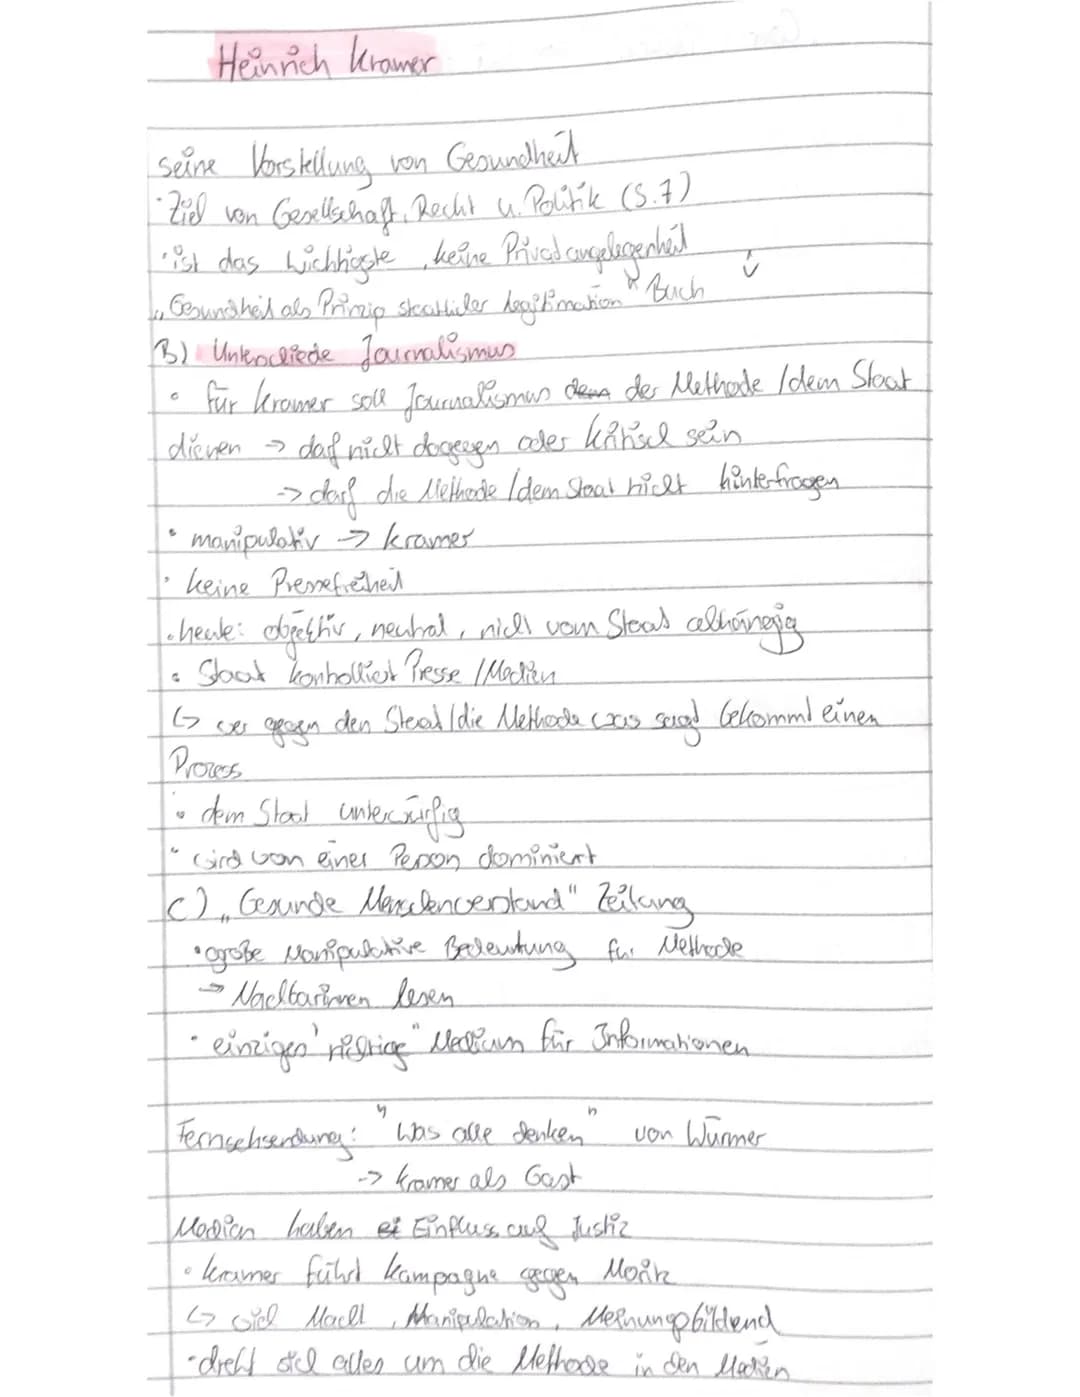 Heinrich Kramer
seine Vorstellung von Gesundheit
· Ziel von Gesellschaft, Recht u. Politik (S. 7)
· ist das Wichtigste, keine Privatangelegenheit
„Gesundheit als Prinzip staatlicher Legitimation" Buch
B) Unterschiede Journalismus
• für Kramer soll Journalismus der Methode / dem Staat
dienen → darf nicht dagegen oder kritisch sein
→ darf die Methode / dem Staat nicht hinterfragen
• manipulativ → Kramer
· keine Pressefreiheit
· heute: objektiv, neutral, nicht vom Staat abhängig
• Staat kontrolliert Presse / Medien
↳ wer gegen den Staat / die Methode was sagt bekommt einen
Prozess
• dem Staat unterwürfig
• wird von einer Person dominiert
C) „Gesunde Menschenverstand" Zeitung
• große Manipulative Bedeutung für Methode
→ Nachbarinnen lesen
· einziges "richtige" Medium für Informationen
Fernsehsendung: "Was alle denken" von Würmer
→ Kramer als Gast
Medien haben Einfluss auf Justiz
• Kramer führt Kampagne gegen Moritz
↳ viel Macht, Manipulation, Meinungsbildend
· dreht sich alles um die Methode in den Medien